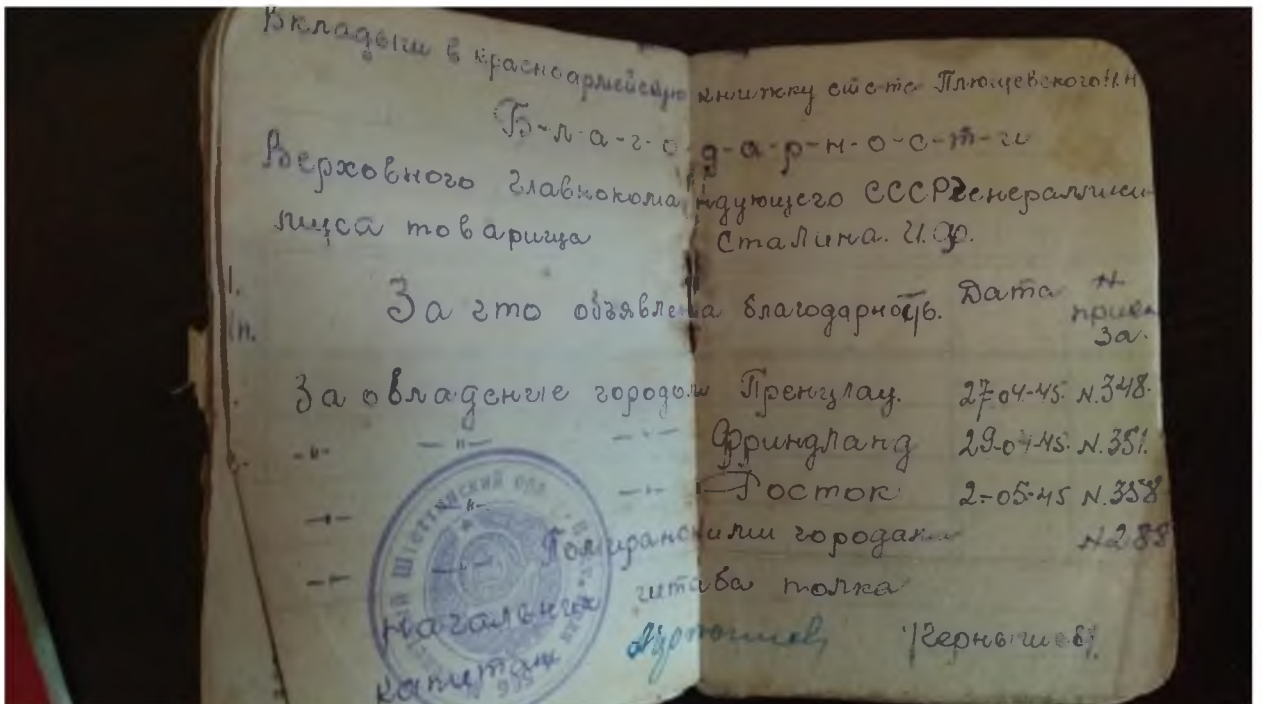 Вкладыш в красноармейскую книжку ст с-та Плющевского И.Н
Б-л-а-г-о-д-а-р-н-о-с-т-и
Верховного главнокомандующего СССР генералисси-
муса товарища Сталина. И.В.
За что объявлена благодарность. Дата N приказа.
За овладение городом Пренцлау. 27-04-45. N.348.
-"- -"- -"- Фридланд 29-04-45. N.351.
-"- -"- -"- Росток 2-05-45 N.358
-"- -"- Померанскими городами N288
Начальник штаба полка
капитан /Чернышев/.